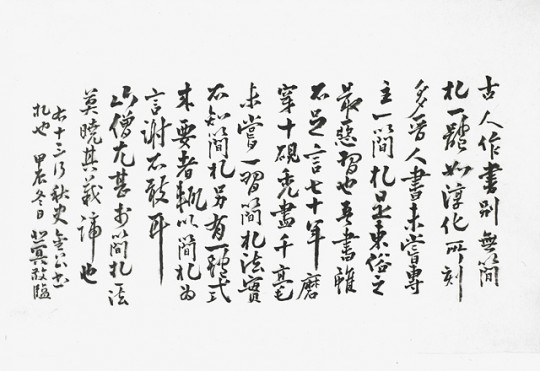 古人作書別無簡
札一體如淳化所刻
多晉人書未嘗專
主一簡札是東俗之
最惡習也吾書雖
不足言七十年磨
穿十硯禿盡千毫
未嘗一習簡札法實
不知簡札另有一體式
來要者輒以簡札為
言謝不敢耳
山僧尤甚於簡札法
莫曉其義諦也
右十三行秋史金公書
札也 甲辰冬日 冥敬臨